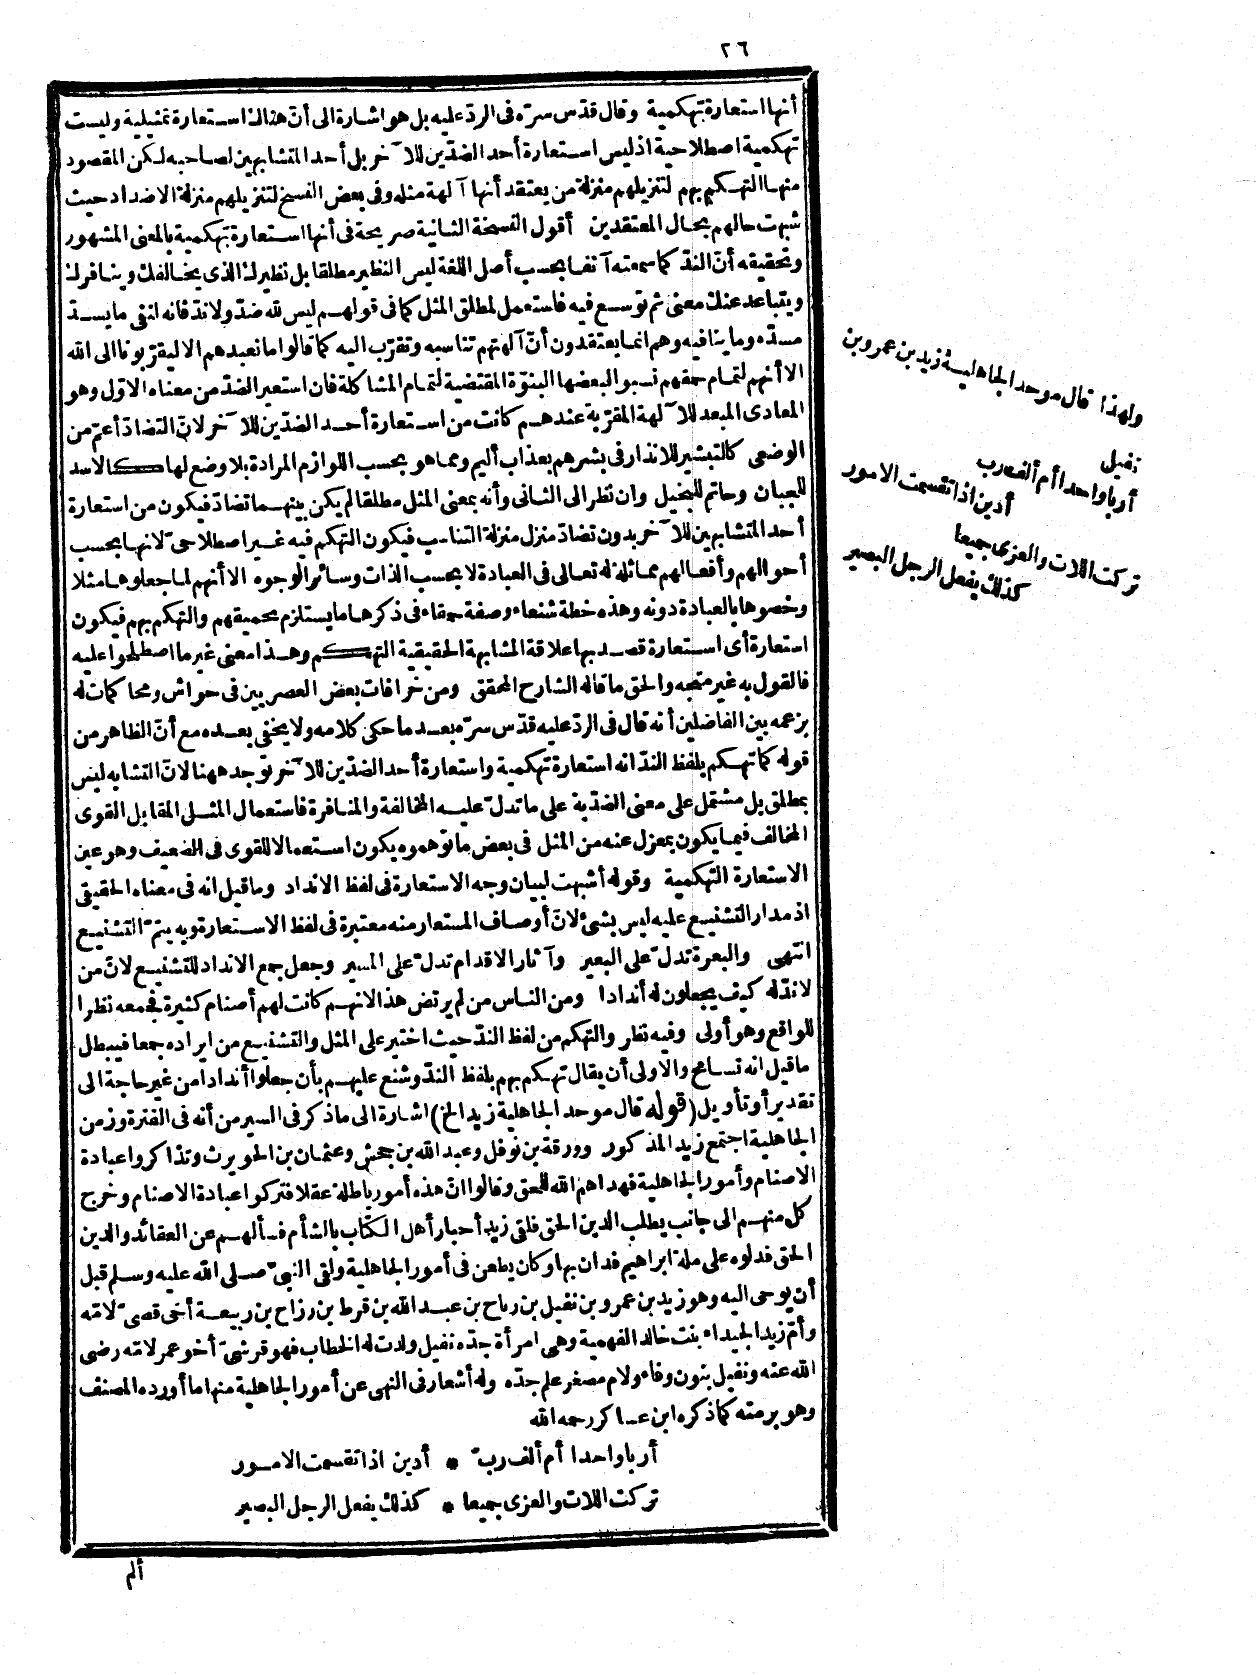 ٢٦
أنها استعارة تهكمية وقال قدّس سرّه في الردّ عليه بل هو اشارة الى أنّ هناك استعارة تمثيلية وليست
تهكمية اصطلاحية اذ ليس استعارة أحد الضدّين للآخر بل أحد المتشابهين لصاحبه لكن المقصود
منها التهكم بهم لتنزيلهم منزلة من يعتقد أنها آلهة مثله وفي بعض النسخ لتنزيلهم منزلة الاضداد حيث
شبهت حالهم بحال المعتقدين أقول النسخة الثانية صريحة في أنها استعارة تهكمية بالمعنى المشهور
وتحقيقه أنّ الندّ كما سمعته آنفا بحسب أصل اللغة ليس النظير مطلقا بل نظيرك الذي يخالفك وينافرك
ويتباعد عنك معنى ثم توسع فيه فاستعمل لمطلق المثل كما في قولهم ليس لله ضدّ ولا ندّ فانه لنفي ما يسدّ
مسدّه وما ينافيه وهم انما يعتقدون أنّ آلهتهم تناسبه وتقرّب اليه كما قالوا ما نعبدهم الا ليقرّبونا الى الله
الا أنهم لتمام حمقهم نسبوا لبعضها البنوّة المقتضية لتمام المشاكلة فان استعير الضدّ من معناه الاوّل وهو
المعادى المبعد للآلهة المقرّبة عندهم كانت من استعارة أحد الضدّين للآخر لانّ التضادّ أعمّ من
الوضعى كالتبشير للانذار في بشرهم بعذاب أليم ومما هو بحسب اللوازم المرادة بلا وضع لها كالاسد
للجبان وحاتم للبخيل وان نظر الى الثانى وأنه بمعنى المثل مطلقا لم يكن بينهما تضادّ فيكون من استعارة
أحد المتشابهين للآخر بدون تضادّ منزل منزلة التناسب فيكون التهكم فيه غير اصطلاحىّ لانها بحسب
أحوالهم وأفعالهم مماثلة له تعالى في العبادة لا بحسب الذات وسائر الوجوه الا أنهم لما جعلوها مثلا
وخصوها بالعبادة دونه وهذه خطة شنعاء وصفة حمقاء في ذكرها ما يستلزم تحميقهم والتهكم بهم فيكون
استعارة أى استعارة قصد بها علاقة المشابهة الحقيقية التهكم وهذا معنى غير ما اصطلحوا عليه
فالقول به غير متجه والحق ما قاله الشارح المحقق ومن خرافات بعض العصريين في حواش ومحاكمات له
بزعمه بين الفاضلين أنه قال في الردّ عليه قدّس سرّه بعد ما حكى كلامه ولا يخفى بعده مع أنّ الظاهر من
قوله كما تهكم بلفظ الندّ انه استعارة تهكمية واستعارة أحد الضدّين للآخر توجد ههنا لانّ التشابه ليس
بمطلق بل مشتمل على معنى الضدّية على ما تدلّ عليه المخالفة والمنافرة فاستعمال المثل المقابل القوى
المخالف فيما يكون بمعزل عنه من المثل في بعض ما توهموه يكون استعمالا للقوى في الضعيف وهو عين
الاستعارة التهكمية وقوله أشبهت لبيان وجه الاستعارة في لفظ الانداد وما قيل انه في معناه الحقيقى
اذ مدار التشنيع عليه ليس بشئ لانّ أوصاف المستعار منه معتبرة في لفظ الاستعارة وبه يتمّ التشنيع
انتهى والبعرة تدلّ على البعير وآثار الاقدام تدلّ على المسير وجعل جمع الانداد للتشنيع لانّ من
لا ندّ له كيف يجعلون له أندادا ومن الناس من لم يرتض هذا لانهم كانت لهم أصنام كثيرة فجمعه نظرا
للواقع وهو أولى وفيه نظر والتهكم من لفظ الندّ حيث اختير على المثل والتشنيع من ايراده جمعا فيبطل
ما قيل انه تسامح والاولى أن يقال تهكم بهم بلفظ الندّ وشنع عليهم بأن جعلوا أندادا من غير حاجة الى
تقدير أو تأويل (قوله قال موحد الجاهلية زيد الخ) اشارة الى ما ذكر في السير من أنه في الفترة وزمن
الجاهلية اجتمع زيد المذكور وورقة بن نوفل وعبد الله بن جحش وعثمان بن الحويرث وتذاكروا عبادة
الاصنام وأمور الجاهلية فهداهم الله للحق وقالوا انّ هذه أمور باطلة عقلا فتركوا عبادة الاصنام وخرج
كل منهم الى جانب يطلب الدين الحق فلقى زيد أحبار أهل الكتاب بالشأم فسألهم عن العقائد والدين
الحق فدلوه على ملة ابراهيم فدان بها وكان يطعن في أمور الجاهلية ولقى النبىّ صلى الله عليه وسلم قبل
أن يوحى اليه وهو زيد بن عمرو بن نفيل بن رباح بن عبد الله بن قرط بن رزاح بن ربيعة أخى قصىّ لامّه
وأمّ زيد الجيداء بنت خالد الفهمية وهى امرأة جدّه نفيل ولدت له الخطاب فهو قرشىّ أخو عمر لامّه رضى
الله عنه ونفيل بنون وفاء ولام مصغر علم جدّه وله أشعار في النهى عن أمور الجاهلية منها ما أورده المصنف
وهو برمته كما ذكره ابن عساكر رحمه الله
أربا واحدا أم ألف ربّ * أدين اذا تقسمت الامور
تركت اللات والعزى جميعا * كذلك يفعل الرجل البصير
ألم
ولهذا قال موحد الجاهلية زيد بن عمرو بن
نفيل
أربا واحدا أم ألف رب
أدين اذا تقسمت الامور
تركت اللات والعزى جميعا
كذلك يفعل الرجل البصير